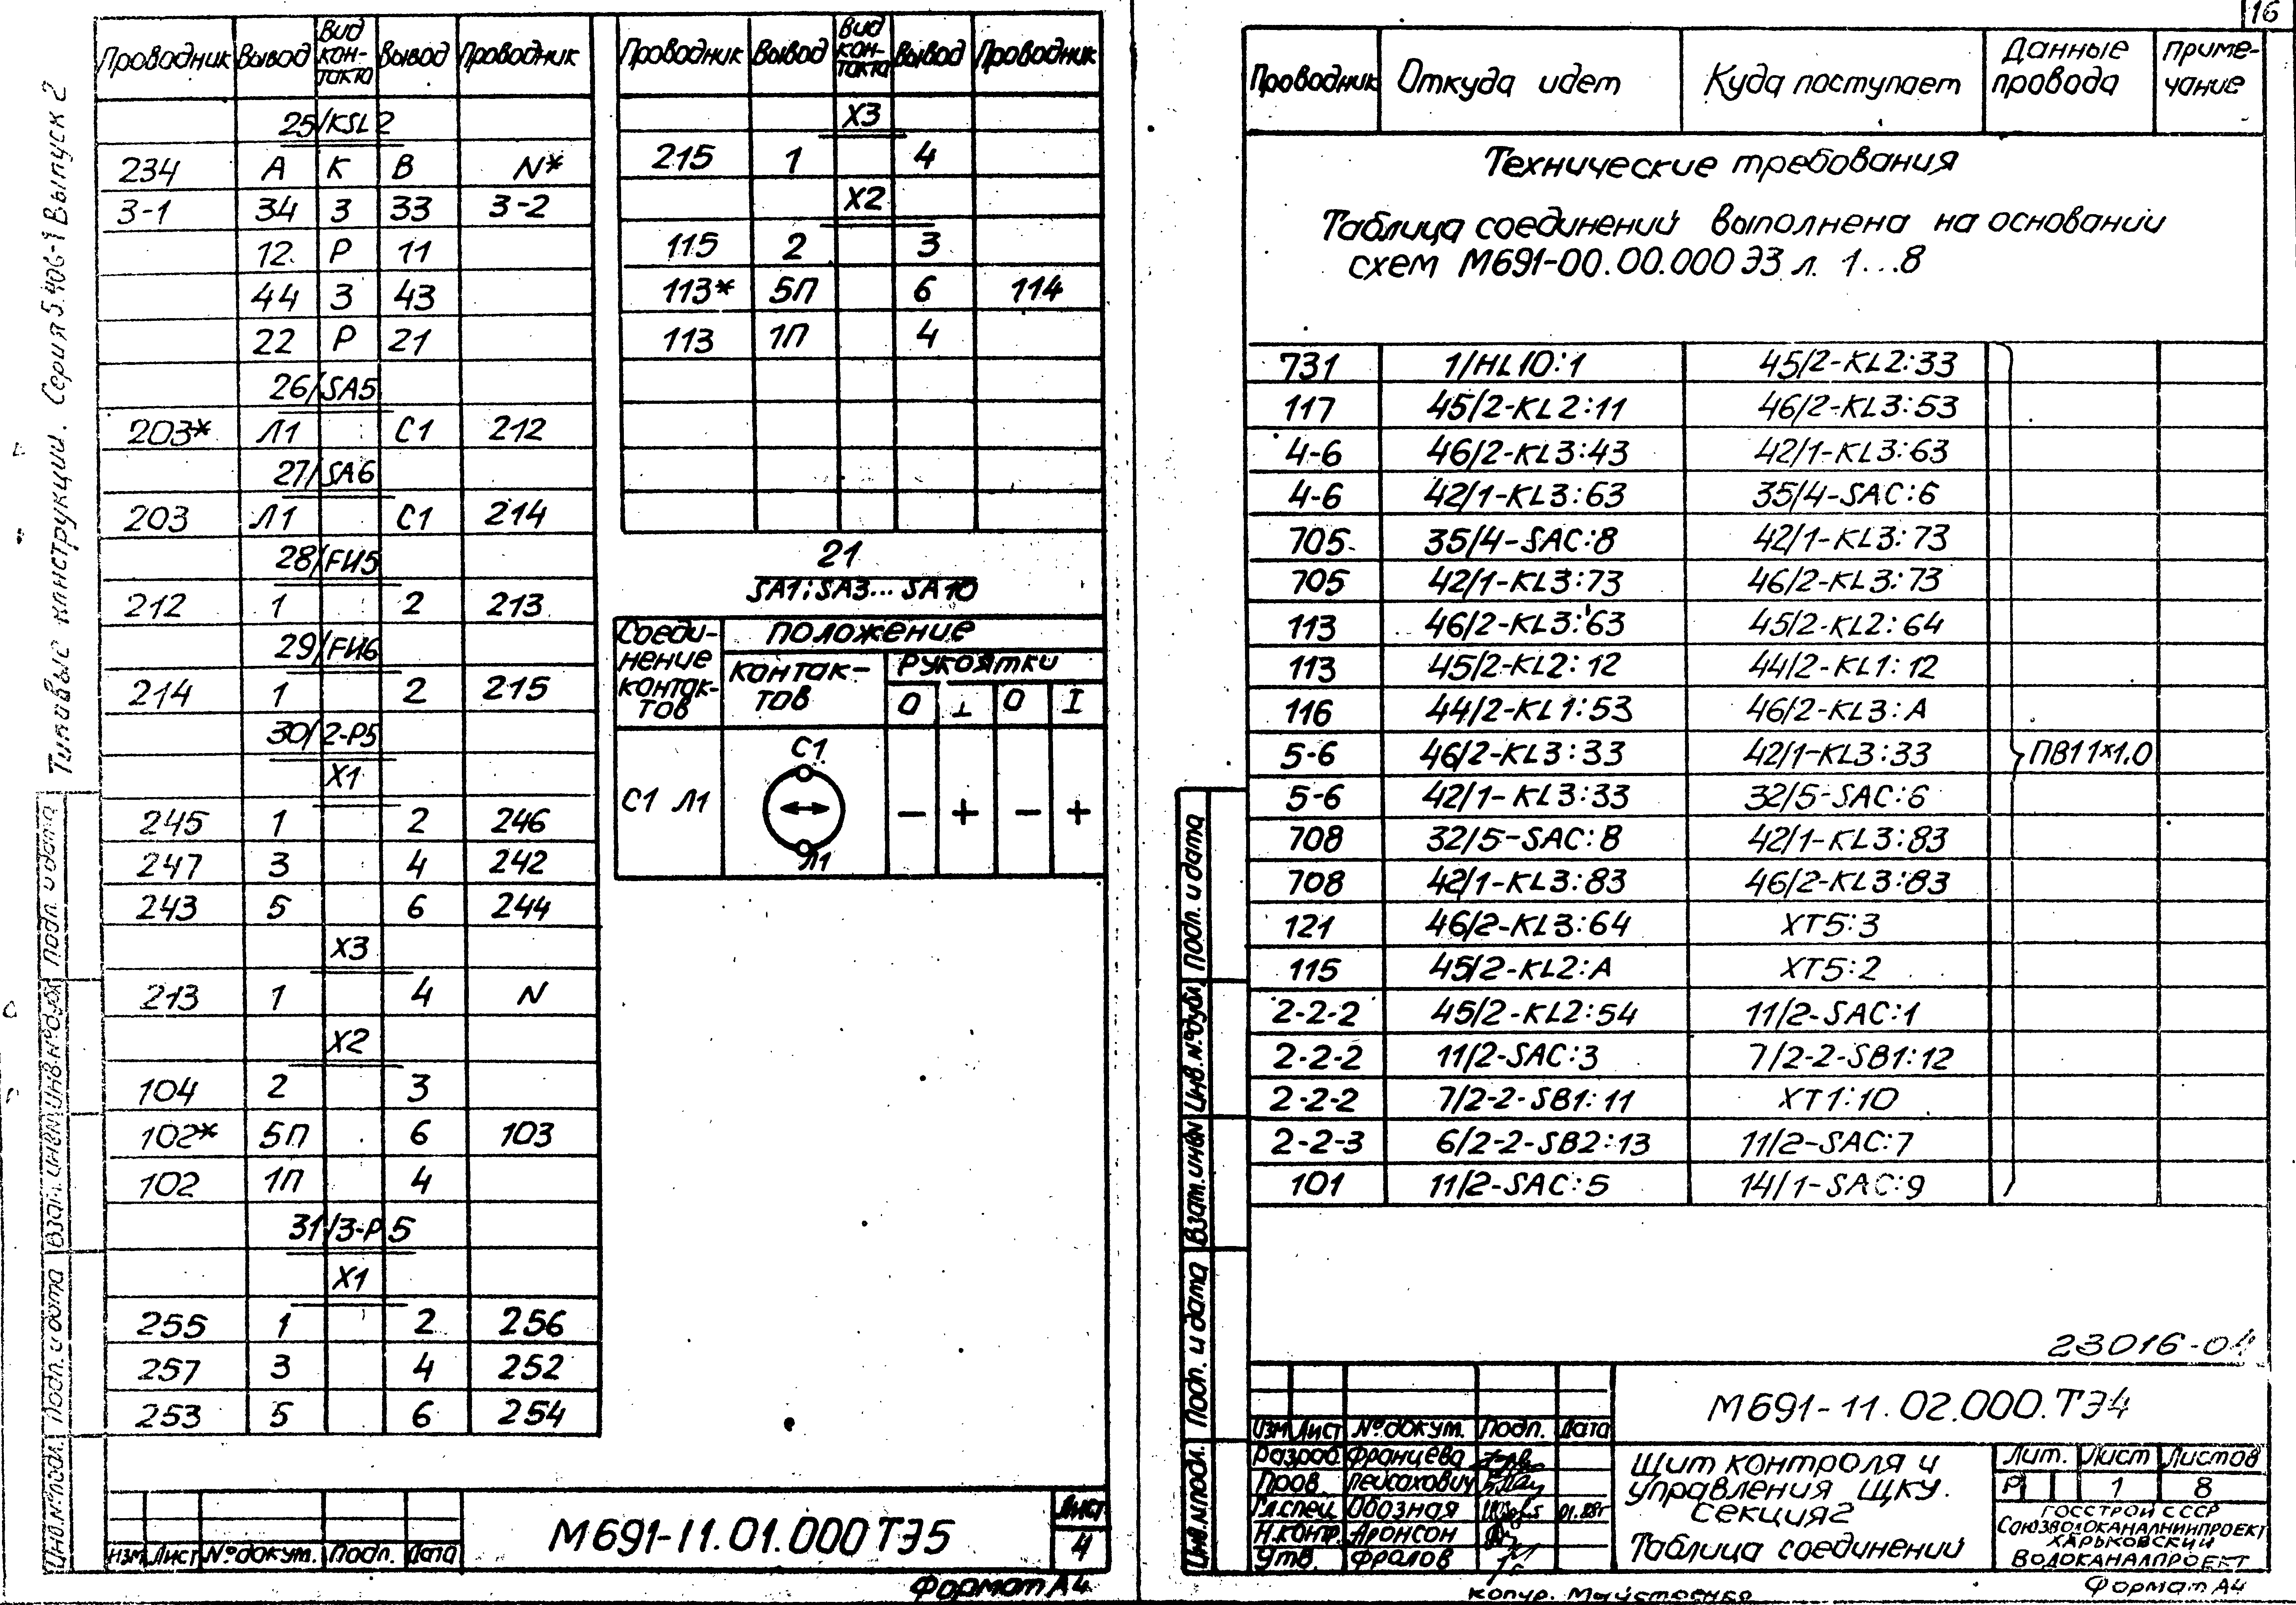 Типовые конструкции. Серия 5.406-1 Выпуск 2
Проводник Вывод Вид контакта Вывод Проводник
25/KSL2
234 А К В N*
3-1 34 З 33 3-2
12 Р 11
44 З 43
22 Р 21
26/SA5
203* Л1 С1 212
27/SA6
203 Л1 С1 214
28/FU5
212 1 2 213
29/FU6
214 1 2 215
30/2-P5
X1
245 1 2 246
247 3 4 242
243 5 6 244
X3
213 1 4 N
X2
104 2 3
102* 5П 6 103
102 1П 4
31/3-P5
X1
255 1 2 256
257 3 4 252
253 5 6 254
Проводник Вывод Вид контакта Вывод Проводник
X3
215 1 4
X2
115 2 3
113* 5П 6 114
113 1П 4
21
SA1; SA3...SA10
Соеди-
нение
контак-
тов
Положение
контак-
тов
Рукоятки
0 ⊥ 0 I
С1 Л1
С1
Л1
− + − +
Инв.№подл. Подп. и дата Взам.инв№ Инв.№дубл. Подп. и дата
Изм Лист №докум. Подп. Дата
М691-11.01.000ТЭ5
Лист
4
Формат А4
16
Проводник Откуда идет Куда поступает Данные провода Приме-
чание
Технические требования
Таблица соединений выполнена на основании
схем М691-00.00.000 Э3 л. 1...8
731 1/HL10:1 45/2-KL2:33
117 45/2-KL2:11 46/2-KL3:53
4-6 46/2-KL3:43 42/1-KL3:63
4-6 42/1-KL3:63 35/4-SAC:6
705 35/4-SAC:8 42/1-KL3:73
705 42/1-KL3:73 46/2-KL3:73
113 46/2-KL3:63 45/2-KL2:64
113 45/2-KL2:12 44/2-KL1:12
116 44/2-KL1:53 46/2-KL3:A
5-6 46/2-KL3:33 42/1-KL3:33 ПВ1 1×1.0
5-6 42/1-KL3:33 32/5-SAC:6
708 32/5-SAC:8 42/1-KL3:83
708 42/1-KL3:83 46/2-KL3:83
121 46/2-KL3:64 XT5:3
115 45/2-KL2:A XT5:2
2-2-2 45/2-KL2:54 11/2-SAC:1
2-2-2 11/2-SAC:3 7/2-2-SB1:12
2-2-2 7/2-2-SB1:11 XT1:10
2-2-3 6/2-2-SB2:13 11/2-SAC:7
101 11/2-SAC:5 14/1-SAC:9
23016-04
Инв.№подл. Подп. и дата Взам.инв№ Инв.№дубл. Подп. и дата
М691-11.02.000.ТЭ4
Изм Лист №докум. Подп. Дата
Разраб. Францева
Пров. Пейсахович
Гл.спец. Обозная 01.88г
Н.контр. Аронсон
Утв. Фролов
Щит контроля и
управления ЩКУ.
Секция 2
Таблица соединений
Лит. Лист Листов
Р 1 8
Госстрой СССР
Союзводоканалниипроект
Харьковский
Водоканалпроект
Формат А4